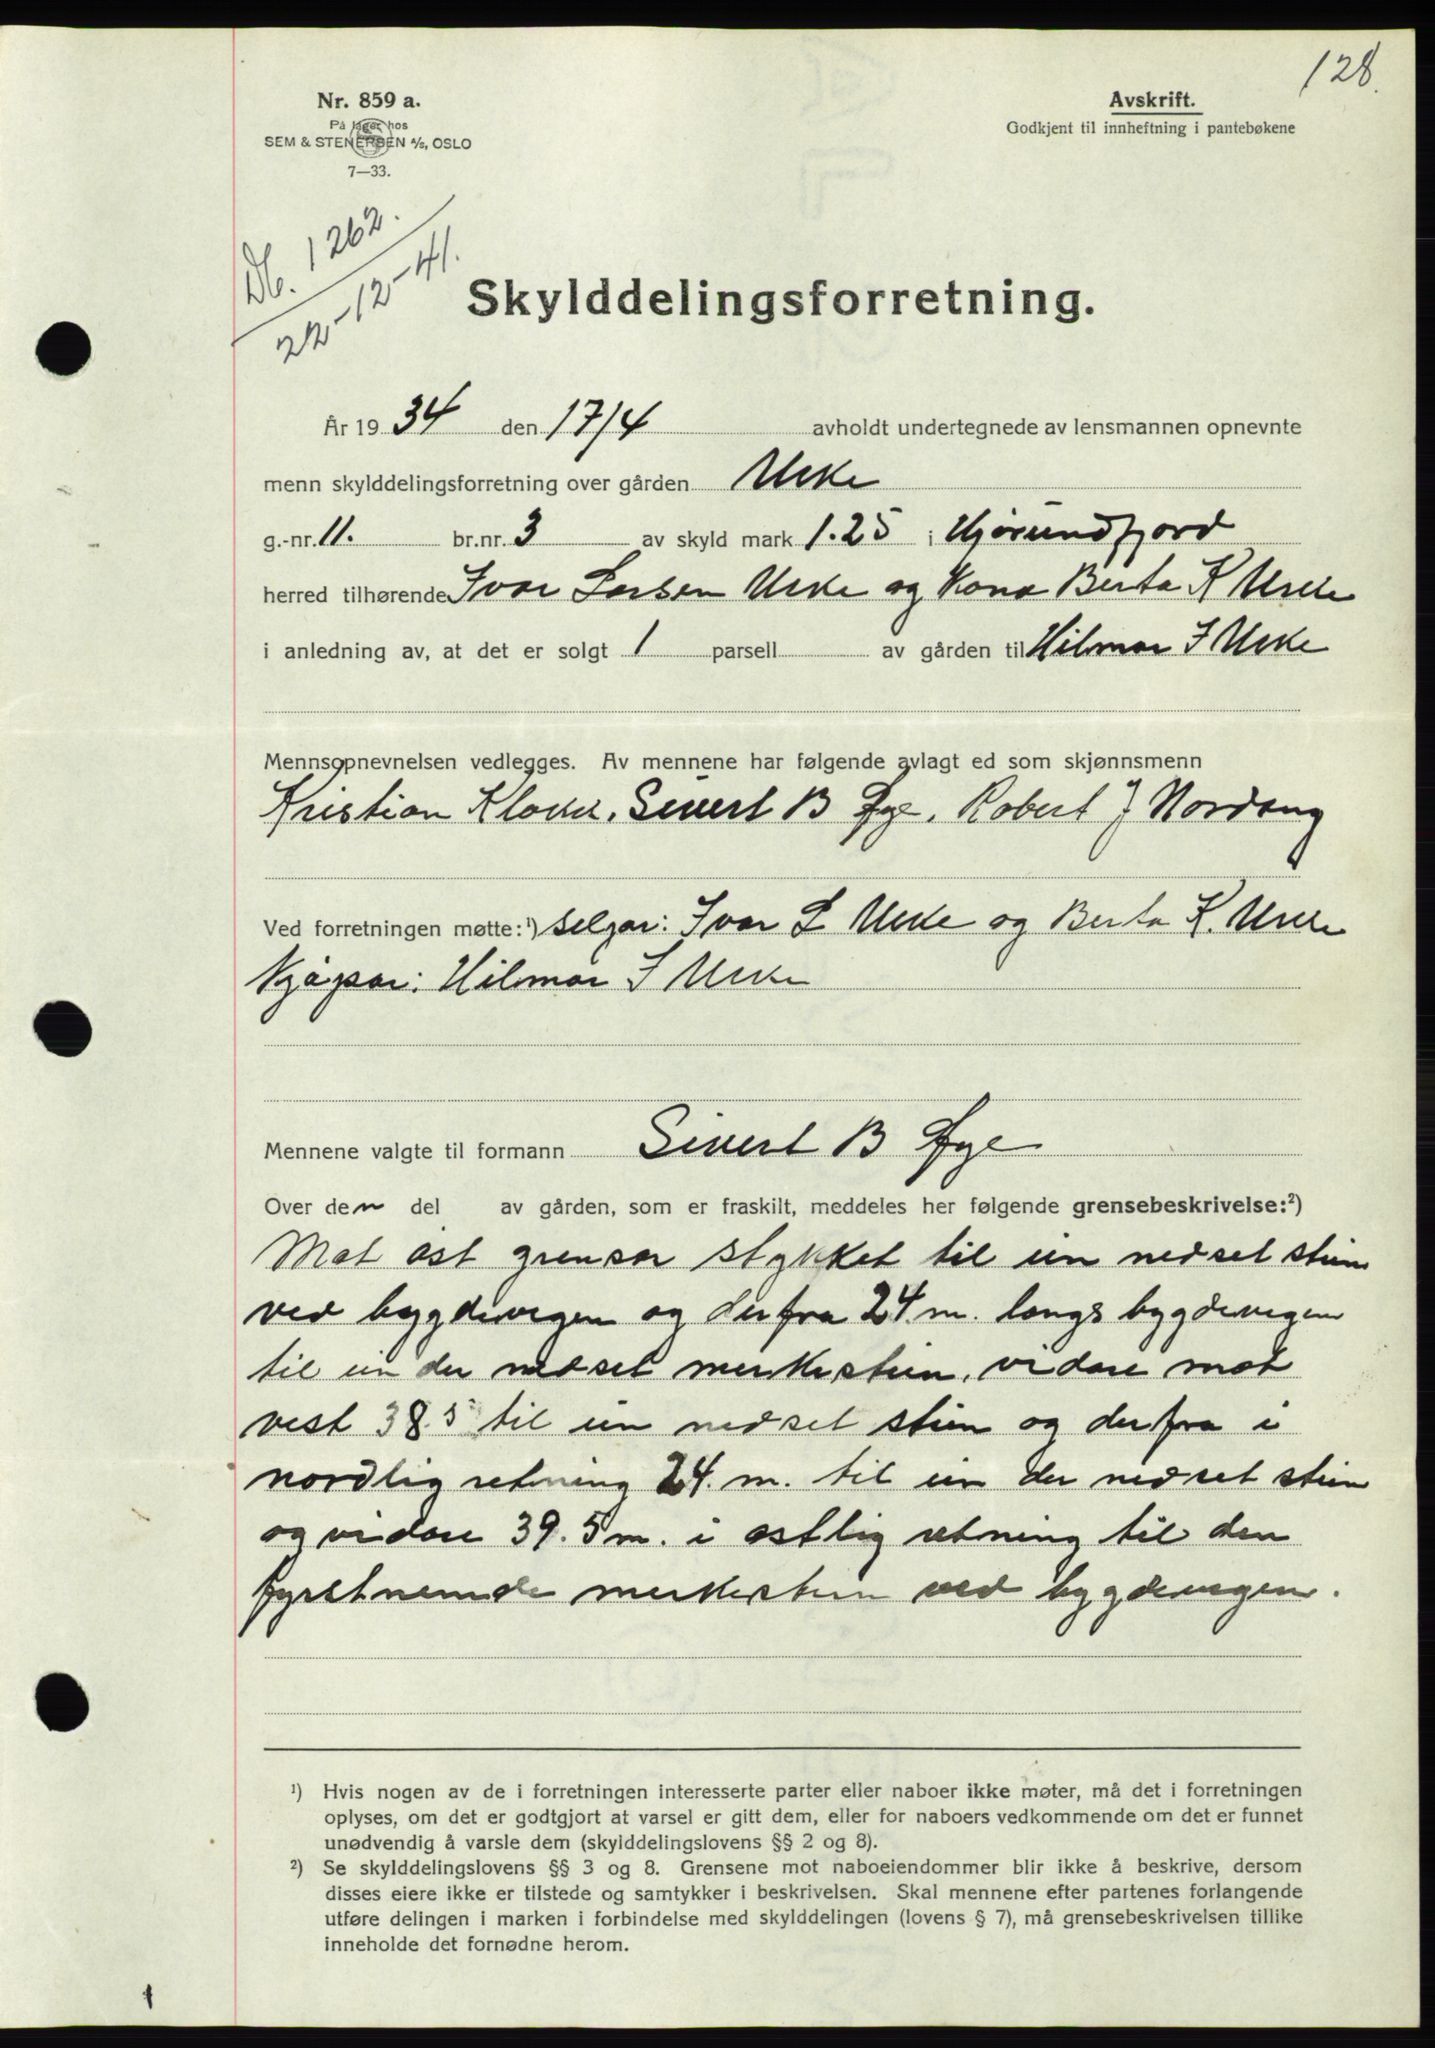 128.
Nr. 859 a.
På lager hos
SEM & STENERSEN A/S, OSLO
7—33.
Avskrift.
Godkjent til innheftning i pantebøkene
Db. 1262.
22-12-41.
Skylddelingsforretning.
År 1934 den 17/4 avholdt undertegnede av lensmannen opnevnte
menn skylddelingsforretning over gården Urke
g.-nr. 11. br.nr. 3 av skyld mark 1.25 i Hjørundfjord
herred tilhørende Ivar Larsen Urke og Kona Berta K Urke
i anledning av, at det er solgt 1 parsell av gården til Hilmar I Urke
Mennsopnevnelsen vedlegges. Av mennene har følgende avlagt ed som skjønnsmenn
Kristian Klokk, Sivert B Øye, Robert J Nordang
Ved forretningen møtte:¹) selgar: Ivar L Urke og Berta K. Urke
Kjøpar: Hilmar I Urke
Mennene valgte til formann Sivert B Øye
Over den del av gården, som er fraskilt, meddeles her følgende grensebeskrivelse:²)
Mot ost grensar stykket til ein nedset stein
ved bygdevegen og derfra 24 m. langs bygdevegen
til ein der nedset merkestein, vidare mot
vest 38.5 til ein nedset stein og derfra i
nordlig retning 24. m. til ein der nedset stein
og vidare 39.5 m. i ostlig retning til den
fyrstnemnde merkestein ved bygdevegen.
¹) Hvis nogen av de i forretningen interesserte parter eller naboer ikke møter, må det i forretningen
oplyses, om det er godtgjort at varsel er gitt dem, eller for naboers vedkommende om det er funnet
unødvendig å varsle dem (skylddelingslovens §§ 2 og 8).
²) Se skylddelingslovens §§ 3 og 8. Grensene mot naboeiendommer blir ikke å beskrive, dersom
disses eiere ikke er tilstede og samtykker i beskrivelsen. Skal mennene efter partenes forlangende
utføre delingen i marken i forbindelse med skylddelingen (lovens § 7), må grensebeskrivelsen tillike
inneholde det fornødne herom.
1